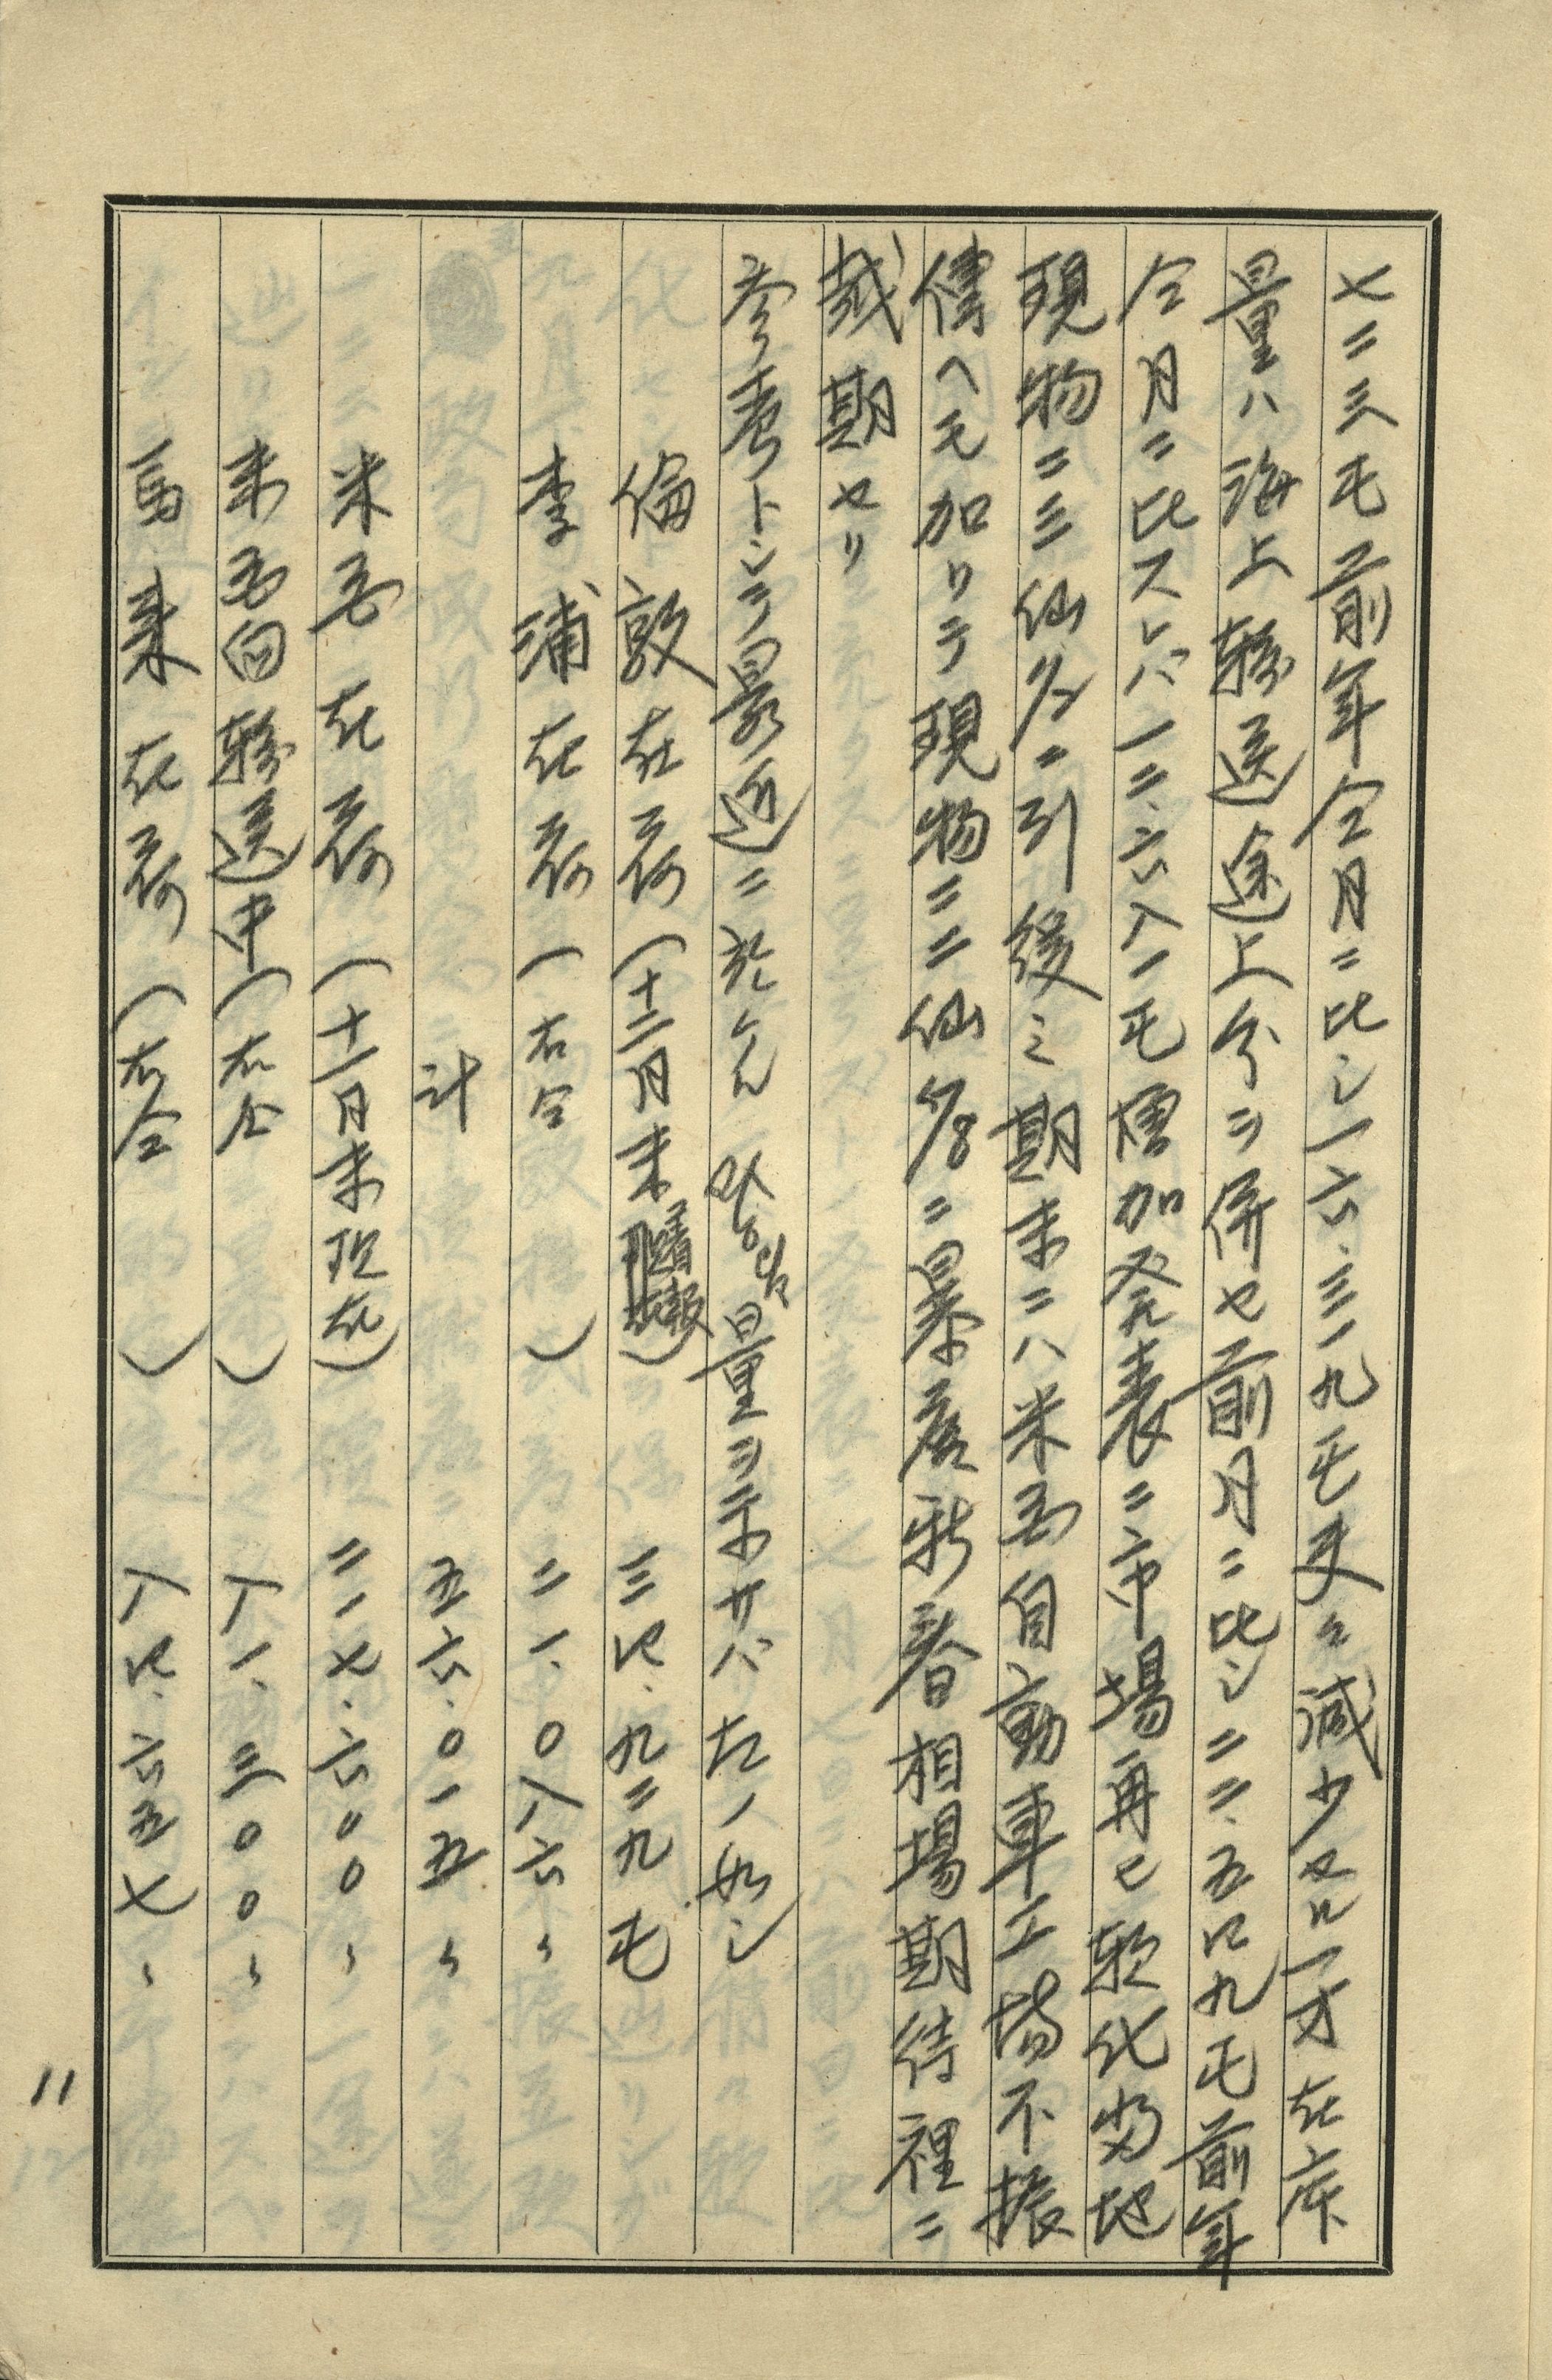 七二三屯前年仝月ニ比シ一六、三一九屯夫々減少セルニ一方在庫
量ハ海上輸送途上分ヲ併セ前月ニ比シ二二、五四九屯前年
仝月ニ比スレバ一二、六八一屯増加発表ニ市場再ヒ軟化当地
現物ニ三仙ニ引後シ期末ニハ米国自動車工場不振
傳ヘモ加リテ現物二二仙⅞ニ暴落新春相場期待裡ニ
越期セリ
参考トシテ最近ニ於ケル量ヲ示サバ左ノ如シ
倫敦在荷(十二月末情報) 三四、九二九屯
李浦在荷(右仝) 二一、〇八六〃
計 五六、〇一五〃
米国在荷(十一月末現在) 二一七、六〇〇〃
米国向輸送中(右仝) 八一、三〇〇〃
馬来在荷(右仝) 八四、六五七〃
11